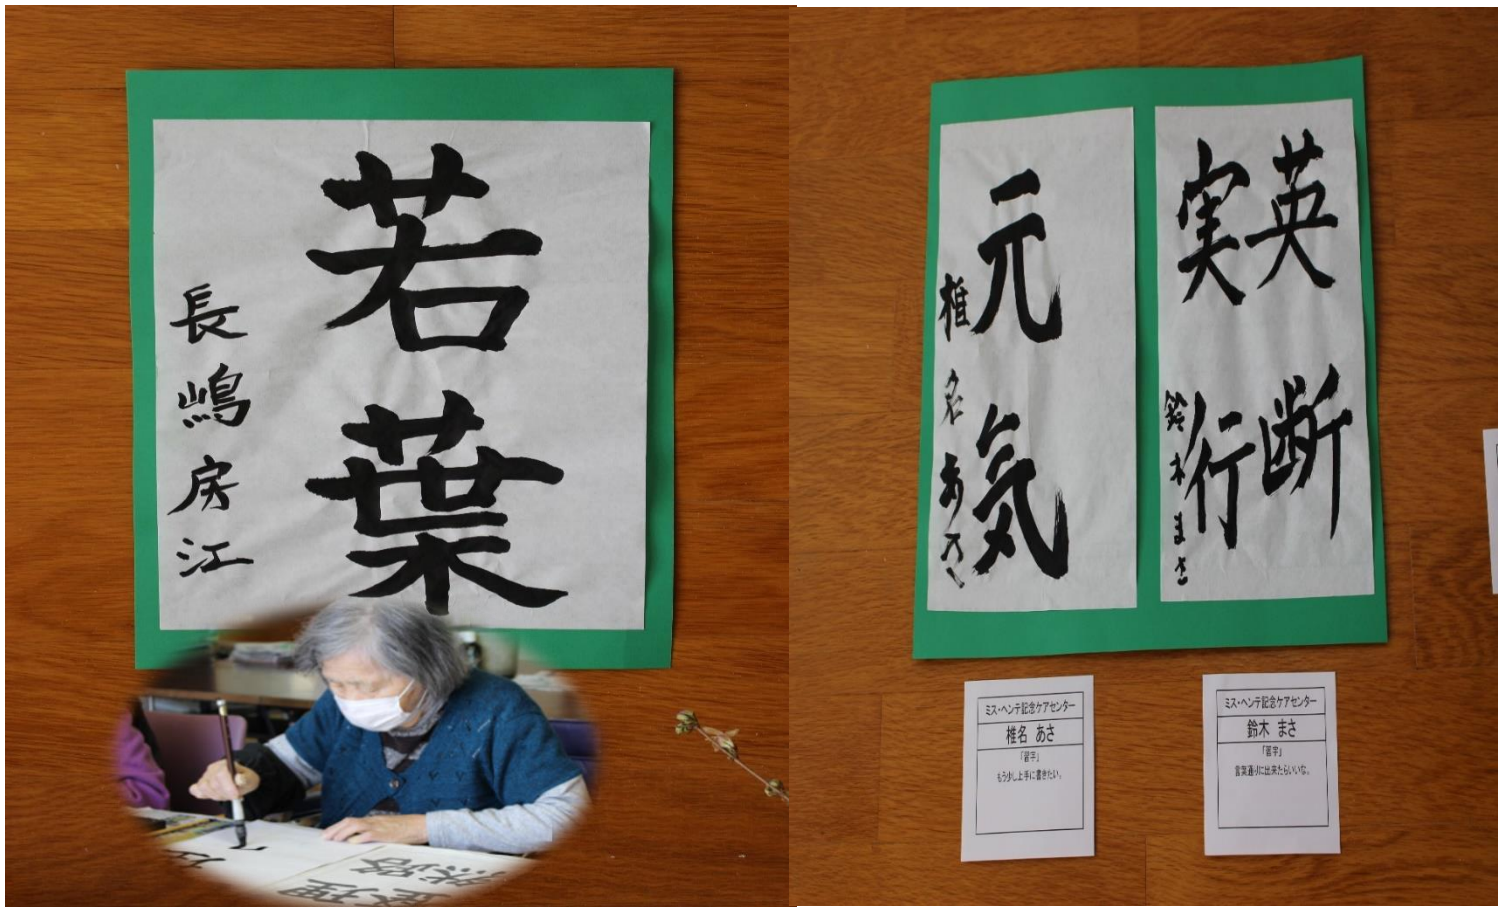 若葉
長嶋房江
英断
実行
鈴木まさ
元気
椎名あさ
ミス・ヘンテ記念ケアセンター
椎名 あさ
「習字」
もう少し上手に書きたい。
ミス・ヘンテ記念ケアセンター
鈴木 まさ
「習字」
言葉通りに出来たらいいな。